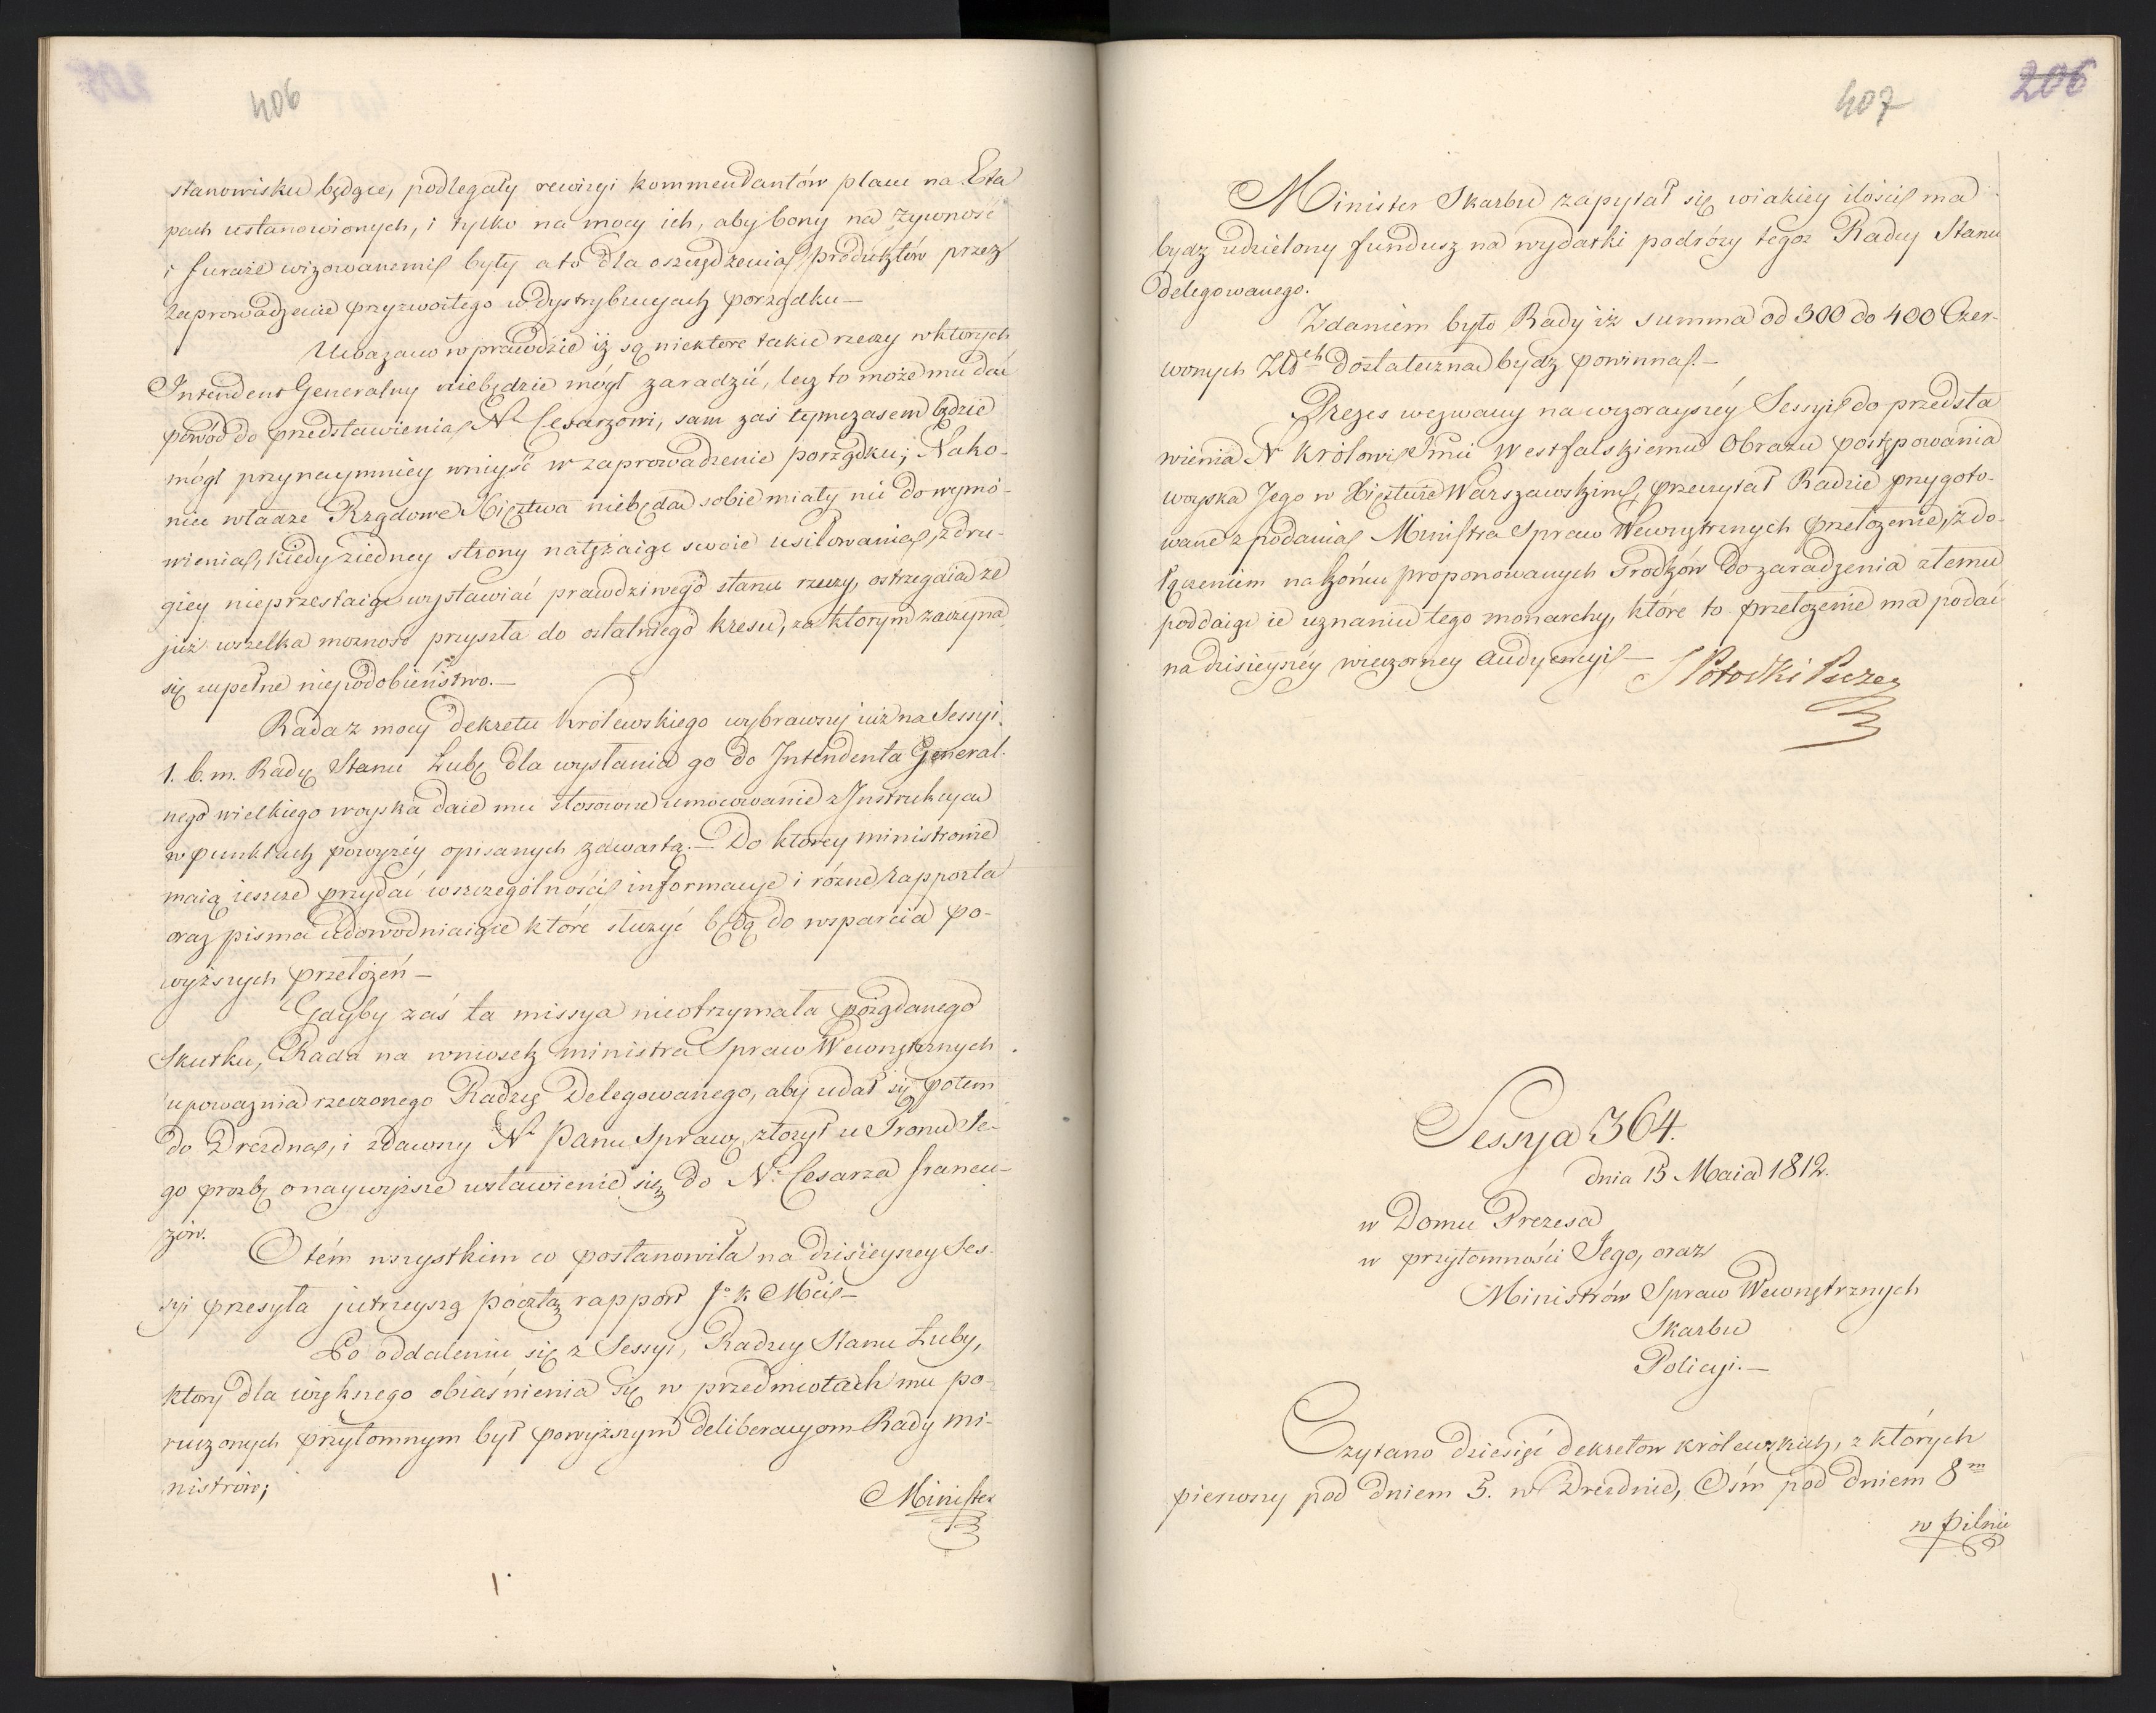 406
stanowisku będące, podlegały rewizyi kommendantów placu na Eta
pach ustanowionych, i tylko na mocy ich, aby bony na żywność
i furaże wizowanemi były a to dla oszczędzenia produktów przez
zaprowadzenie przyzwoitego w dystrybucyach porządku —
Uważano wprawdzie iż są niektóre takie rzeczy w których
Intendent Generalny niebędzie mógł zaradzić, lecz to może mu dać
powód do przedstawienia N. Cesarzowi, sam zaś tymczasem będzie
mógł przynaymniey wniyść w zaprowadzenie porządku; Nako-
niec władze Rządowe Xięztwa niebęda sobie miały nic do wymó-
wienia, kiedy z iedney strony natężaiąc swoie usiłowania, z dru-
giey nieprzestaiąc wystawiać prawdziwego stanu rzeczy, ostrzegaia że
już wszelka możność przyszła do ostatniego kresu, za którym zaczyna
się zupełne niepodobieństwo. —
Rada z mocy dekretu Królewskiego wybrawszy iuż na Sessyi
1. b. m. Radcę Stanu Łubę dla wysłania go do Intendenta General-
nego wielkiego woyska daie mu stosowne umocowanie z Instrukcya
w punktach powyżéy opisanych zawartą. — Do którey ministrowie
maią ieszcze przydać w szczególności informacye i różne rapporta
oraz pisma udowodniaiące które służyć będą do wsparcia po-
wyższych przełożeń —
Gdyby zaś ta missya nieotrzymała pożądanego
Skutku, Rada na wniosek ministra Spraw Wewnętrznych
upoważnia rzeczonego Radzcę Delegowanego, aby udał się potem
do Drezdna, i zdawszy N. Panu Sprawę, złożył u Tronu Je-
go prozbę o naywyższe wstawienie się do N. Cesarza francu-
zów.
O tém wszystkim co postanowiła na dzisieyszey Ses-
syi przesyła jutrzeyszą pocztą rapport J. K. Mci —
Po oddaleniu się z Sessyi, Radzcy Stanu Łuby,
który dla większego obiaśnienia się w przedmiotach mu po-
ruczonych przytomnym był powyższym deliberacyom Rady Mi-
nistrów;
Minister
407
206
Minister Skarbu zapytał się w iakiey ilości ma
bydz udzielony fundusz na wydatki podróży tegoż Radcy Stanu
Delegowanego.
Zdaniem było Rady iż summa od 300 do 400 Czer-
wonych Złłch dostateczna bydz powinna. —
Prezes wezwany na wczorayszéy Sessyi do przedsta
wienia N Królowi Jmci Westfalskiemu Obrazu postępowania
woyska Jego w Xięztwie Warszawskim, przeczytał Radzie przygoto-
wane z podania Ministra Spraw Wewnętrznych przełożenie, iż do-
łączeniem na końcu proponowanych Srodków do zaradzenia złemu
poddaiąc ie uznaniu tego monarchy, które to przełożenie ma podać
na dzisieyszéy wieczorney Audyencyi —
S Potocki Prezes
Sessya 364.
dnia 15 Maia 1812.
w Domu Prezesa
w przytomności Jego, oraz
Ministrów Spraw Wewnętrznych
Skarbu
Policyi. —
Czytano dziesięć dekretów królewskich, z których
pierwszy pod dniem 5. w Dreznie, Ośm pod dniem 8m
w Pilnic